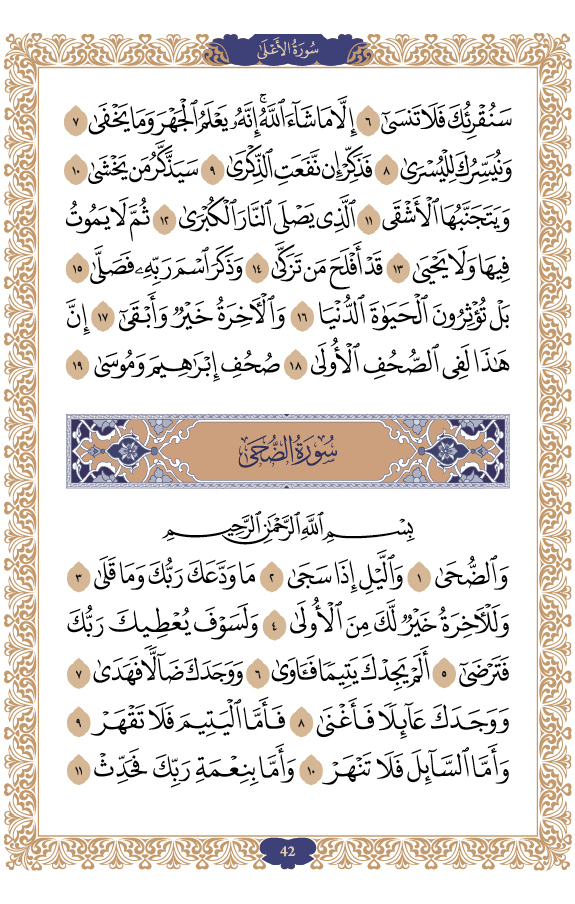 سُورَةُ الأَعْلَىٰ
سَنُقْرِئُكَ فَلَا تَنسَىٰٓ ٦ إِلَّا مَا شَآءَ ٱللَّهُۚ إِنَّهُۥ يَعْلَمُ ٱلْجَهْرَ وَمَا يَخْفَىٰ ٧
وَنُيَسِّرُكَ لِلْيُسْرَىٰ ٨ فَذَكِّرْ إِن نَّفَعَتِ ٱلذِّكْرَىٰ ٩ سَيَذَّكَّرُ مَن يَخْشَىٰ ١٠
وَيَتَجَنَّبُهَا ٱلْأَشْقَى ١١ ٱلَّذِى يَصْلَى ٱلنَّارَ ٱلْكُبْرَىٰ ١٢ ثُمَّ لَا يَمُوتُ
فِيهَا وَلَا يَحْيَىٰ ١٣ قَدْ أَفْلَحَ مَن تَزَكَّىٰ ١٤ وَذَكَرَ ٱسْمَ رَبِّهِۦ فَصَلَّىٰ ١٥
بَلْ تُؤْثِرُونَ ٱلْحَيَوٰةَ ٱلدُّنْيَا ١٦ وَٱلْأَخِرَةُ خَيْرٌ وَأَبْقَىٰٓ ١٧ إِنَّ
هَٰذَا لَفِى ٱلصُّحُفِ ٱلْأُولَىٰ ١٨ صُحُفِ إِبْرَٰهِيمَ وَمُوسَىٰ ١٩
سُورَةُ الضُّحَىٰ
بِسْمِ ٱللَّهِ ٱلرَّحْمَٰنِ ٱلرَّحِيمِ
وَٱلضُّحَىٰ ١ وَٱلَّيْلِ إِذَا سَجَىٰ ٢ مَا وَدَّعَكَ رَبُّكَ وَمَا قَلَىٰ ٣
وَلَلْأَخِرَةُ خَيْرٌ لَّكَ مِنَ ٱلْأُولَىٰ ٤ وَلَسَوْفَ يُعْطِيكَ رَبُّكَ
فَتَرْضَىٰٓ ٥ أَلَمْ يَجِدْكَ يَتِيمًا فَـَٔاوَىٰ ٦ وَوَجَدَكَ ضَآلًّا فَهَدَىٰ ٧
وَوَجَدَكَ عَآئِلًا فَأَغْنَىٰ ٨ فَأَمَّا ٱلْيَتِيمَ فَلَا تَقْهَرْ ٩
وَأَمَّا ٱلسَّآئِلَ فَلَا تَنْهَرْ ١٠ وَأَمَّا بِنِعْمَةِ رَبِّكَ فَحَدِّثْ ١١
42